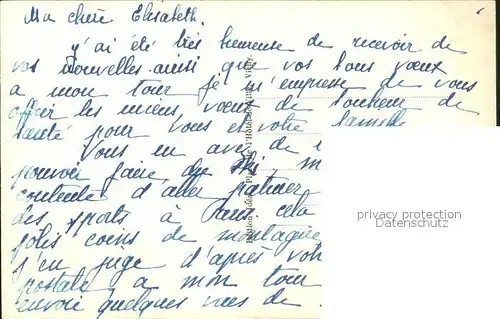 Ma chère Elisabeth.
j'ai été très heureuse de recevoir de
vos nouvelles ainsi que vos bons vœux
a mon tour je m'empresse de vous
offrir les miens, vœux de bonheur de
santé pour vous et votre famille
Vous en avez de
pouvoir faire du ski, m
contente d'aller patiner
des sports à Paris. cela
jolis coins de montagne
j'en juge d'après votr
postale a mon tour
envoie quelques vues de
privacy protection
Datenschutz